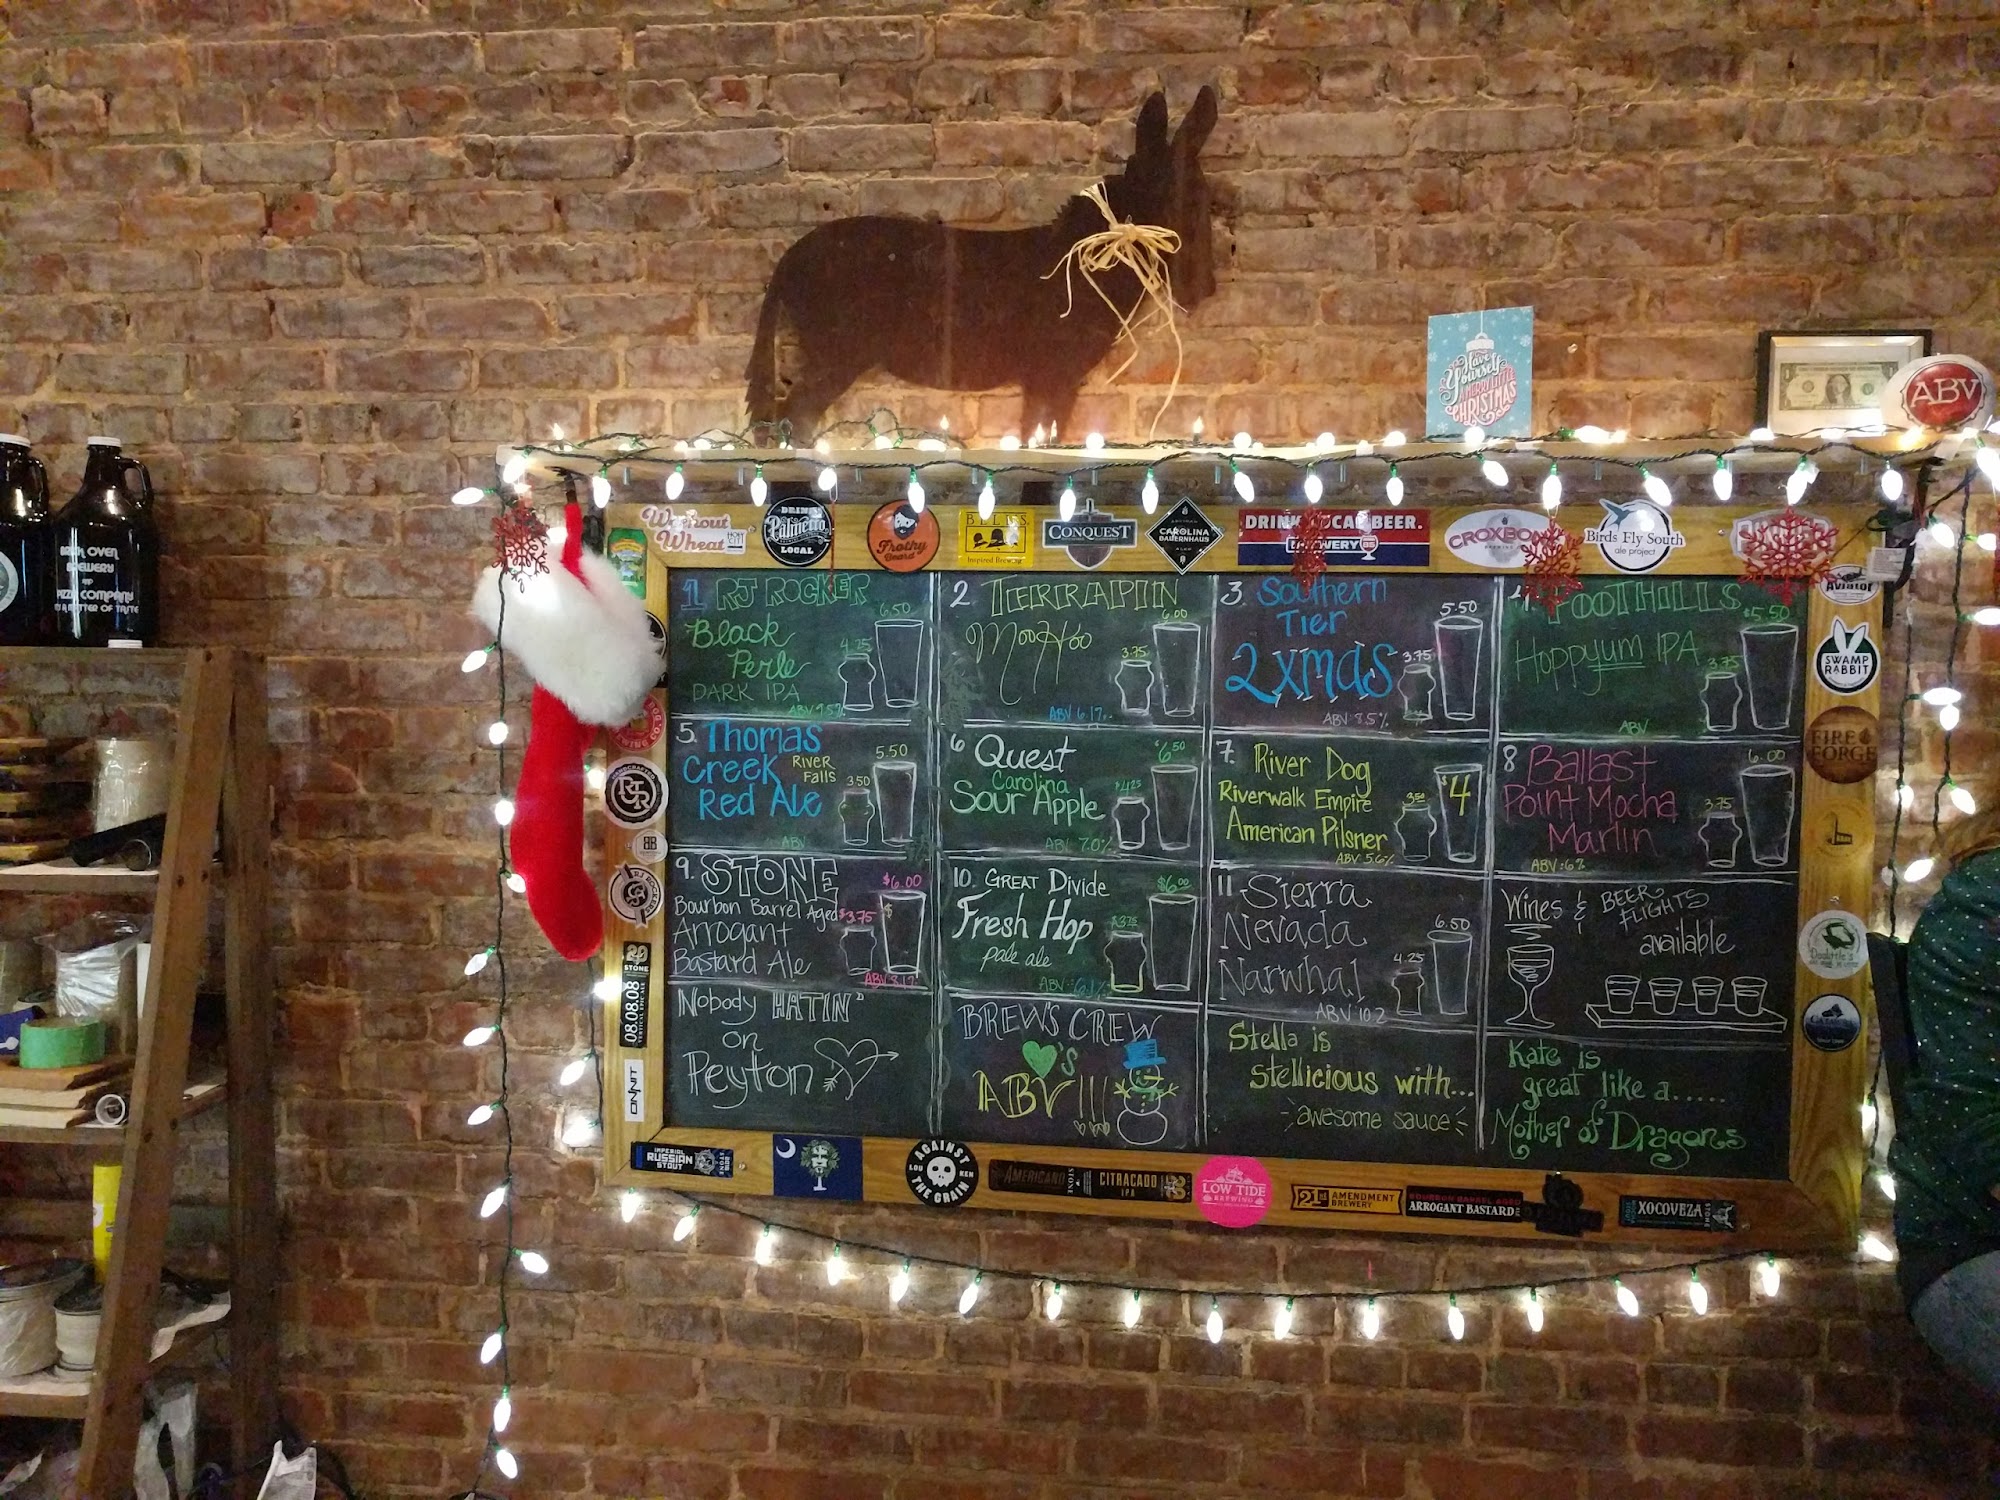 Have
Yourself
A MERRY LITTLE
CHRISTMAS
ABV
BRICK OVEN
BREWERY
AND
PIZZA COMPANY
A MATTER OF TASTE
Wheat
DRINK
Palmetto
LOCAL
Frothy
Beard
BELL'S
Inspired Brewing
CONQUEST
CAROLINA
BAUERNHAUS
DRINK LOCAL BEER.
BREWERY 85
Birds Fly South
ale project
Aviator
SWAMP
RABBIT
FIRE
FORGE
1 RJ ROCKER
6.50
Black
Perle
4.25
DARK IPA
2 TERRAPIN
6.00
MooHoo
3.75
3. Southern
5.50
Tier
2 XMAS
3.75
ABV 8.5%
FOOTHILLS
$5.50
Hoppyum IPA
3.75
ABV
5. Thomas
5.50
Creek RIVER
FALLS
3.50
Red Ale
ABV
6 Quest
6.50
Carolina
Sour Apple
$4.25
ABV 7.0%
7. River Dog
Riverwalk Empire
3.50
$4
American Pilsner
ABV 5.6%
8 Ballast
6.00
Point Mocha
3.75
Marlin
ABV :6%
9. STONE
$6.00
Bourbon Barrel Aged
$3.75
Arrogant
Bastard Ale
10. GREAT Divide
$6.00
Fresh Hop
3.75
pale ale
11 Sierra
Nevada
6.50
Narwhal
4.25
ABV 10.2
Wines & BEER
FLIGHTS
available
Nobody HATIN'
on
Peyton
BREW'S CREW
'S
ABV!!!
Stella is
stellicious with...
awesome sauce
Kate is
great like a.....
Mother of Dragons
STONE
08.08.08
VERTICAL EPIC ALE
ONNIT
IMPERIAL
RUSSIAN
STOUT
AGAINST
LOU KEN
THE GRAIN
AMERICANO
STONE
CITRACADO
IPA
LOW TIDE
BREWING
21st AMENDMENT
BREWERY
BOURBON BARREL AGED
ARROGANT BASTARD
XOCOVEZA
STONE